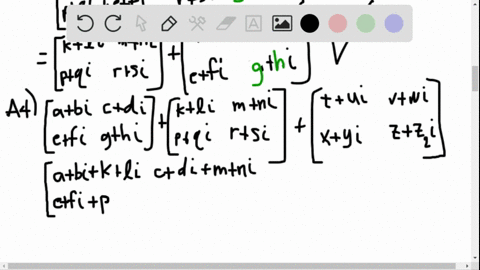 = [k+li m+ni
p+qi r+si] + [
e+fi g+hi] V
A4) [a+bi c+di
e+fi g+hi] + [k+li m+ni
p+qi r+si] + [t+ui v+wi
x+yi z+z₂i]
[a+bi+k+li c+di+m+ni
e+fi+p